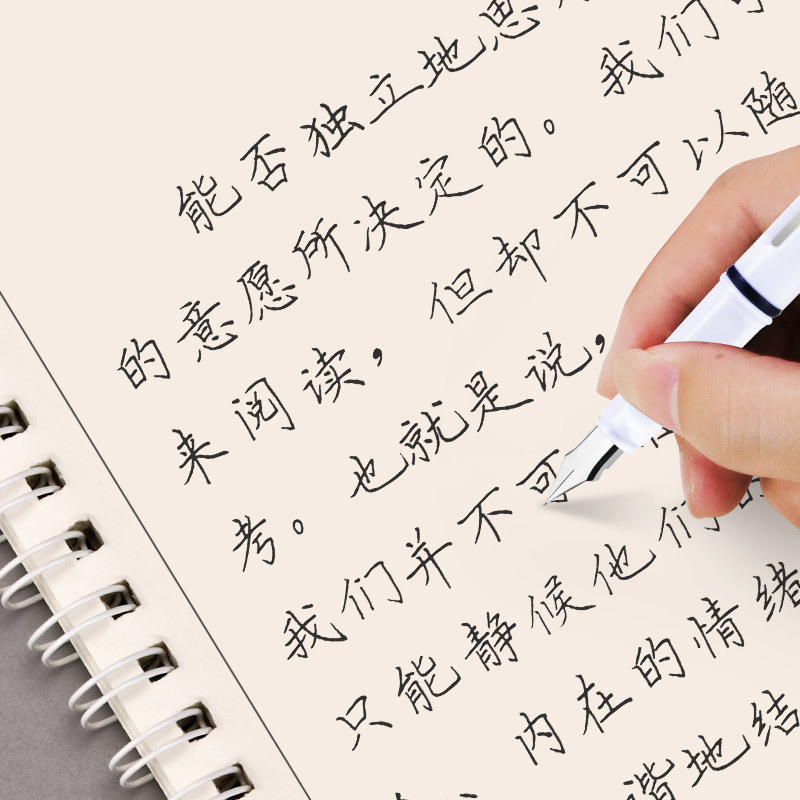 能否独立地思
的意愿所决定的。我们
来阅读，但却不可以随
考。也就是说，
我们并不可
只能静候他们
内在的情绪
谐地结